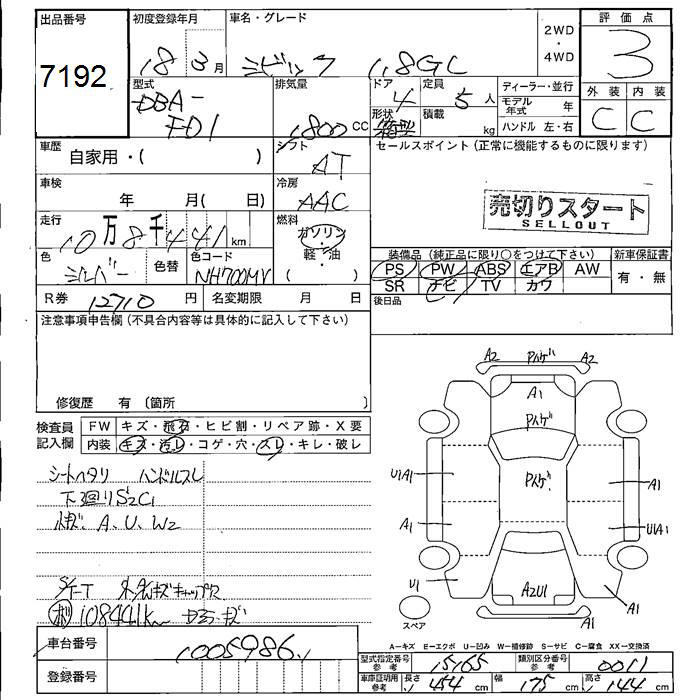 出品番号
7192
初度登録年月
18 3月
車名・グレード
シビック 1.8GL
2WD
・
4WD
評価点
3
外装 内装
C C
型式
DBA-
FD1
排気量
1800 CC
ドア
4
定員
5人
形状
箱型
積載
kg
ディーラー・並行
モデル年式 年
ハンドル 左・右
車歴
自家用・( )
シフト
AT
セールスポイント(正常に機能するものに限ります)
車検
年 月( 日)
冷房
AAC
売切りスタート
SELLOUT
走行
10万8千441km
燃料
ガソリン
・
軽・油
色
シルバー
色替
色コード
NH700MV
装備品(純正品に限り○をつけて下さい)
PS PW ABS エアB AW
SR ナビ TV カワ
新車保証書
有・無
後日品
R券 12710円
名変期限 月 日
注意事項申告欄(不具合内容等は具体的に記入して下さい)
修復歴 有 〔箇所 〕
検査員
記入欄
FW キズ・飛石・ヒビ割・リペア跡・X要
内装 キズ・汚レ・コゲ・穴・スレ・キレ・破レ
シートヘタリ ハンドルスレ
下廻りS2C1
A、U、W2
108441km
A2 Pハゲ A2
A1
Pハゲ
U1A1
Pハゲ
A1
A1
U1A1
U1
A2U1
A1
A1
スペア
A−キズ E−エクボ U−凹み W−補修跡 S−サビ C−腐食 XX−交換済
車台番号
1005986
登録番号
型式指定番号
参考
15165
類別区分番号
参考
0011
車庫証明用
参考
長さ 454cm
幅 175cm
高さ 144cm